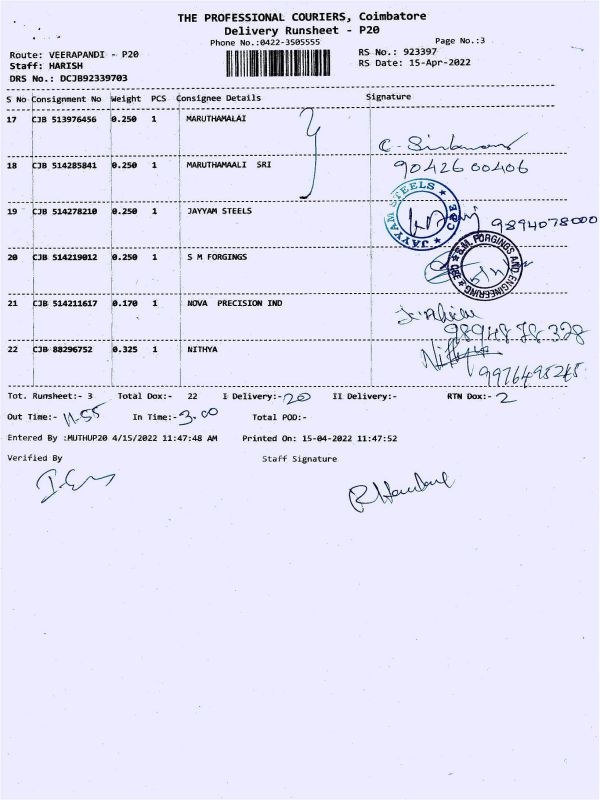 THE PROFESSIONAL COURIERS, Coimbatore
Delivery Runsheet - P20
Phone No.:0422-3505555 Page No.:3
Route: VEERAPANDI - P20 RS No.: 923397
Staff: HARISH RS Date: 15-Apr-2022
DRS No.: DCJB92339703
S No Consignment No Weight PCS Consignee Details Signature
17 CJB 513976456 0.250 1 MARUTHAMALAI
18 CJB 514285841 0.250 1 MARUTHAMAALI SRI 90426 00406
19 CJB 514278210 0.250 1 JAYYAM STEELS JAYYAM STEELS CBE 9894078000
20 CJB 514219012 0.250 1 S M FORGINGS S.M. FORGINGS AND ENGINEERING CBE
21 CJB 514211617 0.170 1 NOVA PRECISION IND
98948 78 328
22 CJB 88296752 0.325 1 NITHYA Nithya
Tot. Runsheet:- 3 Total Dox:- 22 I Delivery:- 20 II Delivery:- RTN Dox:- 2
Out Time:- 11.55 In Time:- 3.00 Total POD:-
Entered By :MUTHUP20 4/15/2022 11:47:48 AM Printed On: 15-04-2022 11:47:52
Verified By Staff Signature